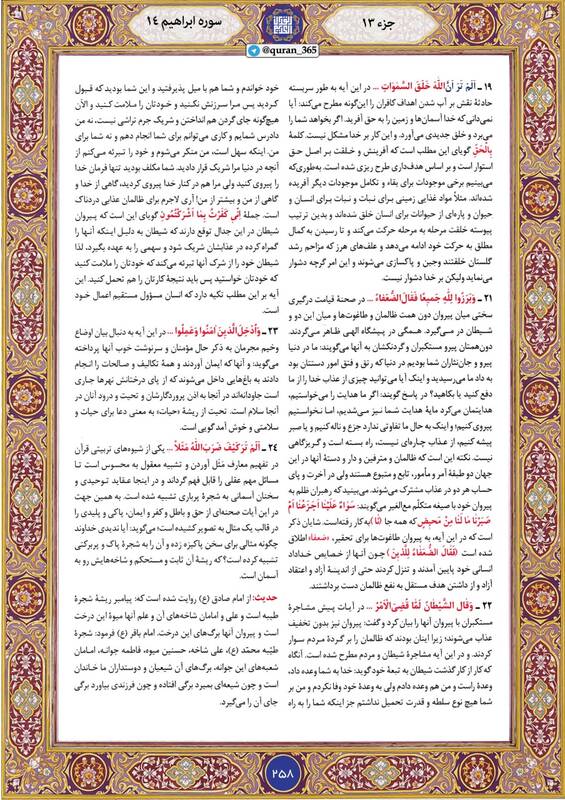 جزء ۱۳
سوره ابراهیم ۱۴
@quran_365
۱۹ـ اَلَمْ تَرَ اَنَّ اللهَ خَلَقَ السَّمٰوَاتِ ... در این آیه به طور سربسته
حادثهٔ نقش بر آب شدن اهداف کافران را این‌گونه مطرح می‌کند: آیا
نمی‌دانی که خدا آسمان‌ها و زمین را به حق آفرید. اگر بخواهد شما را
می‌برد و خلق جدیدی می‌آورد. و این کار بر خدا مشکل نیست. کلمهٔ
بِالْحَقِّ گویای این مطلب است که آفرینش و خلقت بر اصل حق
استوار است و بر اساس هدف‌داری طرح ریزی شده است. به‌طوری‌که
می‌بینیم برخی موجودات برای بقاء و تکامل موجودات دیگر آفریده
شده‌اند. مثلاً مواد غذایی زمینی برای نبات و نبات برای انسان و
حیوان و پاره‌ای از حیوانات برای انسان خلق شده‌اند و بدین ترتیب
پیوسته خلقت مرحله به مرحله حرکت می‌کند و تا رسیدن به کمال
مطلق به حرکت خود ادامه می‌دهد و علف‌های هرز که مزاحم رشد
گلستان خلقتند وجین و پاکسازی می‌شوند و این امر گرچه دشوار
می‌نماید ولیکن بر خدا دشوار نیست.
۲۱ـ وَبَرَزُوا لِلّٰهِ جَمِیعًا فَقَالَ الضُّعَفَاءُ ... در صحنهٔ قیامت درگیری
سختی میان پیروان دون همت ظالمان و طاغوت‌ها و میان این دو و
شیطان در می‌گیرد. همگی در پیشگاه الهی ظاهر می‌گردند.
دون‌همتان پیرو مستکبران و گردنکشان به آنها می‌گویند: ما در دنیا
پیرو و جان‌نثاران شما بودیم در دنیا که رتق و فتق امور دستتان بود
به داد ما می‌رسیدید و اینک آیا می‌توانید چیزی از عذاب خدا را از ما
دفع کنید یا بکاهید؟ در پاسخ گویند: اگر ما هدایت را می‌خواستیم،
هدایتمان می‌کرد مایهٔ هدایت شما نیز می‌شدیم، اما نخواستیم
پیروی کنیم؛ و اینک به حال ما تفاوتی ندارد جزع و ناله کنیم و یا صبر
پیشه کنیم، از عذاب چاره‌ای نیست، راه بسته است و گریزگاهی
نیست. نکته این است که ظالمان و مترفین و دار و دستهٔ آنها در این
جهان دو طبقهٔ آمر و مأمور، تابع و متبوع هستند ولی در آخرت و پای
حساب هر دو در عذاب مشترک می‌شوند. می‌بینید که رهبران ظلم به
پیروان خود با صیغه متکلّم مع‌الغیر می‌گویند: سَوَاءٌ عَلَیْنَا اَجَزِعْنَا اَمْ
صَبَرْنَا مَا لَنَا مِنْ مَحِیصٍ که همه جا (نَا) به کار رفته‌است. شایان ذکر
است که در این آیه، به پیروان طاغوت‌ها برای تحقیر، «ضعفاء» اطلاق
شده است (فَقَالَ الضُّعَفَاءُ لِلَّذِینَ) چون آنها از خصایص خداداد
انسانی خود پایین آمدند و تنزل کردند حتی از اندیشهٔ آزاد و اعتقاد
آزاد و از داشتن هدف مستقل به نفع ظالمان دست برداشتند.
۲۲ـ وَقَالَ الشَّیْطَانُ لَمَّا قُضِیَ الْاَمْرُ ... در آیات پیش مشاجرهٔ
مستکبران با پیروان آنها را بیان کرد و گفت: پیروان نیز بدون تخفیف
عذاب می‌شوند؛ زیرا اینان بودند که ظالمان را بر گردهٔ مردم سوار
کردند. و در این آیه مشاجرهٔ شیطان و مردم مطرح شده است. آنگاه
که کار از کار گذشت شیطان به تبعهٔ خود گوید: خدا به شما وعده داد،
وعدهٔ راست و من هم وعده دادم ولی به وعدهٔ خود وفا نکردم و من بر
شما هیچ نوع سلطه و قدرت تحمیل نداشتم جز اینکه شما را به راه
خود خواندم و شما هم با میل پذیرفتید و این شما بودید که قبول
کردید پس مرا سرزنش نکنید و خودتان را ملامت کنید و الآن
هیچ‌گونه جای گردن هم انداختن و شریک جرم تراشی نیست، نه من
دادرس شمایم و کاری می‌توانم برای شما انجام دهم و نه شما برای
من. اینکه سهل است، من منکر می‌شوم و خود را تبرئه می‌کنم از
آنچه در دنیا مرا شریک قرار دادید. شما مکلف بودید تنها فرمان خدا
را پیروی کنید ولی مرا هم در کنار خدا پیروی کردید، گاهی از خدا و
گاهی از من و بیشتر از من! آری لاجرم برای ظالمان عذابی دردناک
است. جملهٔ اِنِّی کَفَرْتُ بِمَا اَشْرَکْتُمُونِ گویای این است که پیروان
شیطان در این جدال توقع دارند که شیطان به دلیل اینکه آنها را
گمراه کرده در عذابشان شریک شود و سهمی را به عهده بگیرد، لذا
شیطان خود را از شرک آنها تبرئه می‌کند که خودتان را ملامت کنید
که خودتان خواستید پس باید نتیجهٔ کارتان را هم تحمل کنید. این
آیه بر این مطلب تکیه دارد که انسان مسؤول مستقیم اعمال خود
است.
۲۳ـ وَاُدْخِلَ الَّذِینَ اٰمَنُوا وَعَمِلُوا ... در این آیه به دنبال بیان اوضاع
وخیم مجرمان به ذکر حال مؤمنان و سرنوشت خوب آنها پرداخته
می‌گوید: و آنها که ایمان آوردند و همهٔ تکالیف و صالحات را انجام
دادند به باغ‌هایی داخل می‌شوند که از پای درختانش نهرها جاری
است جاودانه‌اند در آنجا به اذن پروردگارشان و تحیت و درود آنان در
آنجا سلام است. تحیت از ریشهٔ «حیات» به معنی دعا برای حیات و
سلامتی و خوش آمدگویی است.
۲۴ـ اَلَمْ تَرَ کَیْفَ ضَرَبَ اللهُ مَثَلاً ... یکی از شیوه‌های تربیتی قرآن
در تفهیم معارف مثل آوردن و تشبیه معقول به محسوس است تا
مسائل مهم عقلی را قابل فهم گرداند و در اینجا عقاید توحیدی و
سخنان آسمانی به شجرهٔ پرباری تشبیه شده است. به همین جهت
در این آیات صحنه‌ای از حق و باطل و کفر و ایمان، پاکی و پلیدی را
در قالب یک مثال به تصویر کشیده است؛ می‌گوید: آیا ندیدی خداوند
چگونه مثالی برای سخن پاکیزه زده و آن را به شجرهٔ پاک و پربرکتی
تشبیه کرده است؟ که ریشهٔ آن ثابت و مستحکم و شاخه‌هایش رو به
آسمان است.
حدیث: از امام صادق (ع) روایت شده است که: پیامبر ریشهٔ شجرهٔ
طیبه است و علی و امامان شاخه‌های آن و علم آنها میوهٔ این درخت
است و پیروان آنها برگ‌های این درخت. امام باقر (ع) فرمود: شجرهٔ
طیّبه محمّد (ع)، علی شاخه، حسنین میوه، فاطمه جوانه، امامان
شعبه‌های این جوانه، برگ‌های آن شیعیان و دوستداران ما خاندان
است و چون شیعه‌ای بمیرد برگی افتاده و چون فرزندی بیاورد برگی
جای آن را می‌گیرد.
۲۵۸